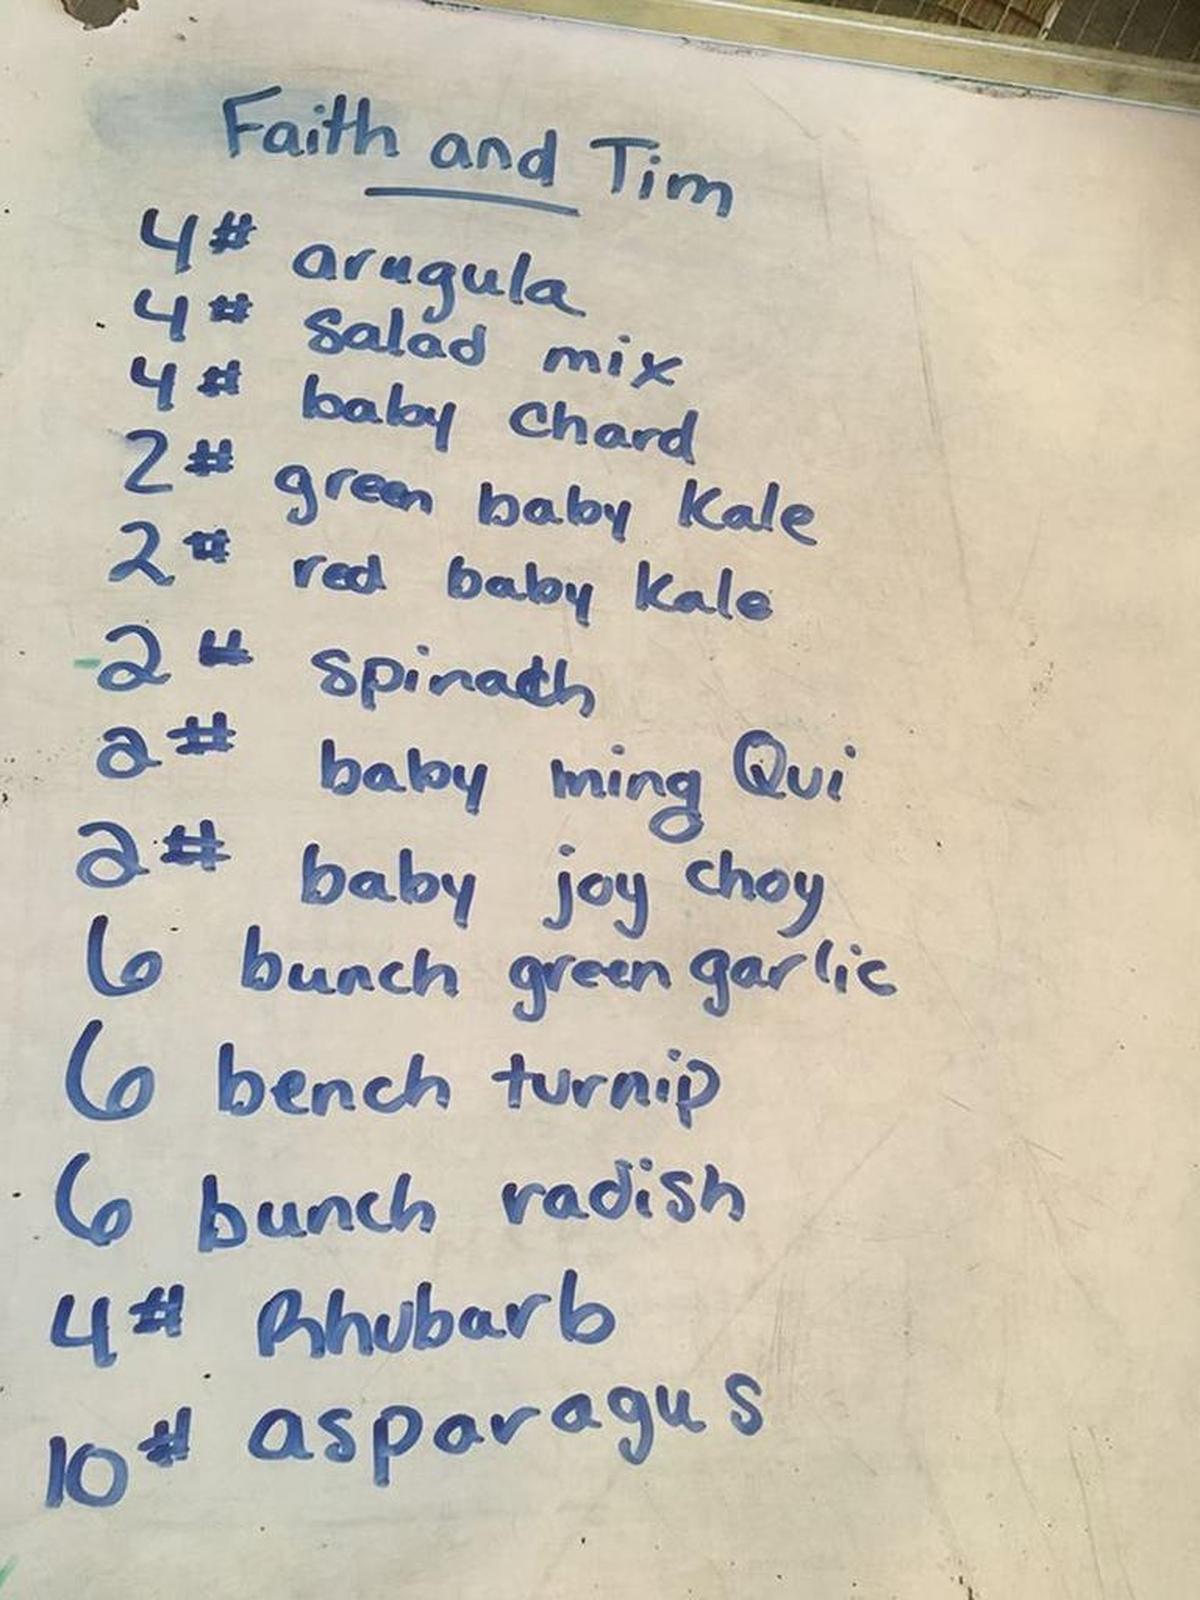 Faith and Tim
4# arugula
4# salad mix
4# baby chard
2# green baby kale
2# red baby kale
2# spinach
2# baby ming Qui
2# baby joy choy
6 bunch green garlic
6 bench turnip
6 bunch radish
4# Rhubarb
10# asparagus